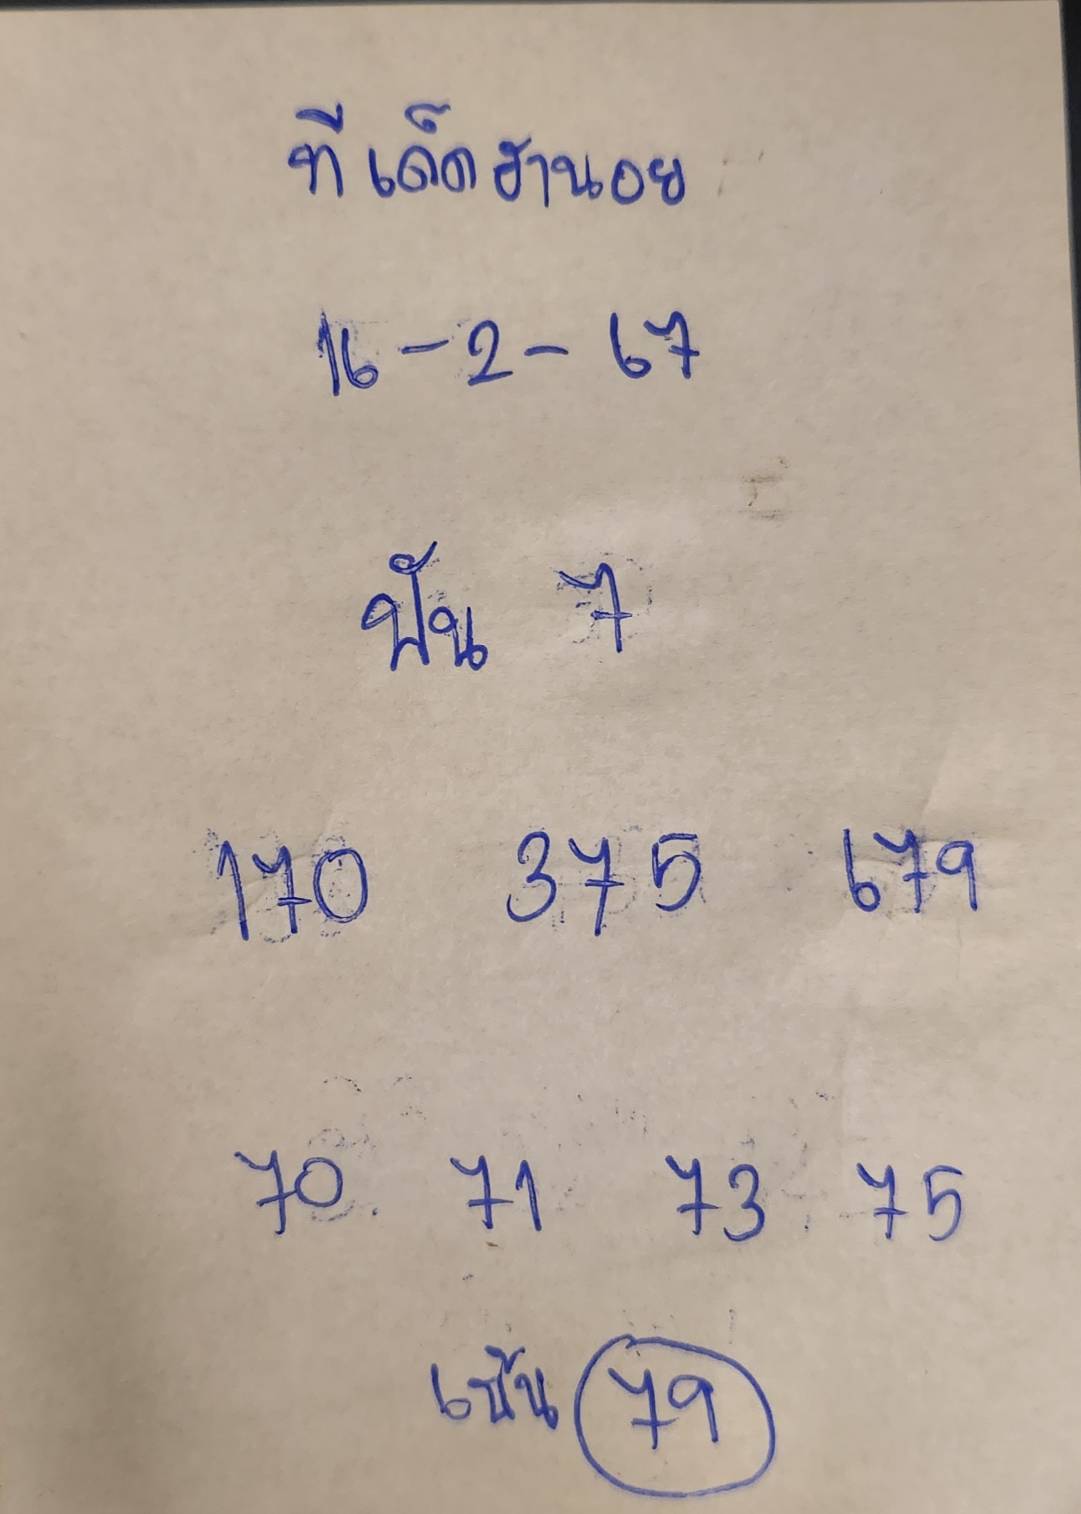 ทีเด็ดฮานอย
16-2-67
ฟัน 7
170 375 679
70 71 73 75
เน้น 79